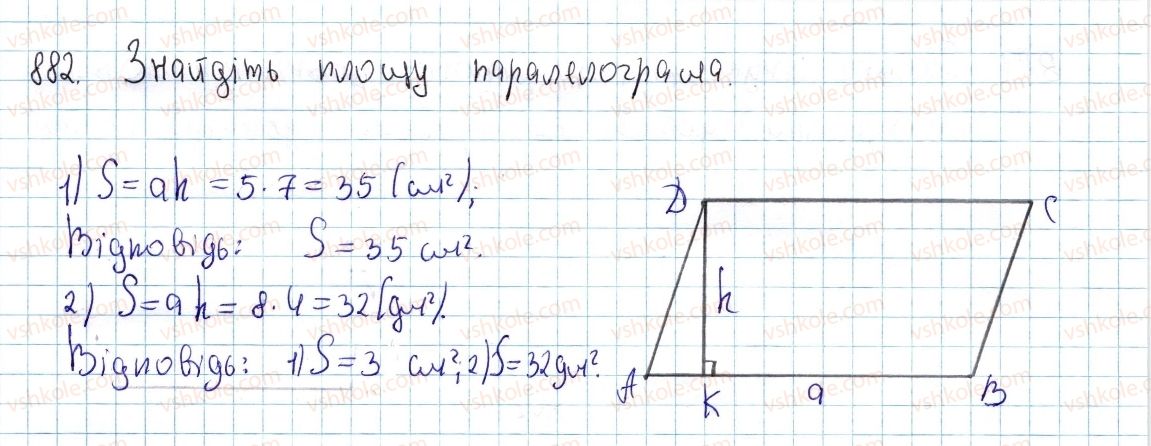 882. Знайдіть площу паралелограма.
1) S = ah = 5 · 7 = 35 (см²);
Відповідь: S = 35 см².
2) S = ah = 8 · 4 = 32 (дм²).
Відповідь: 1) S = 3 см²; 2) S = 32 дм².
D C
h
A K a B